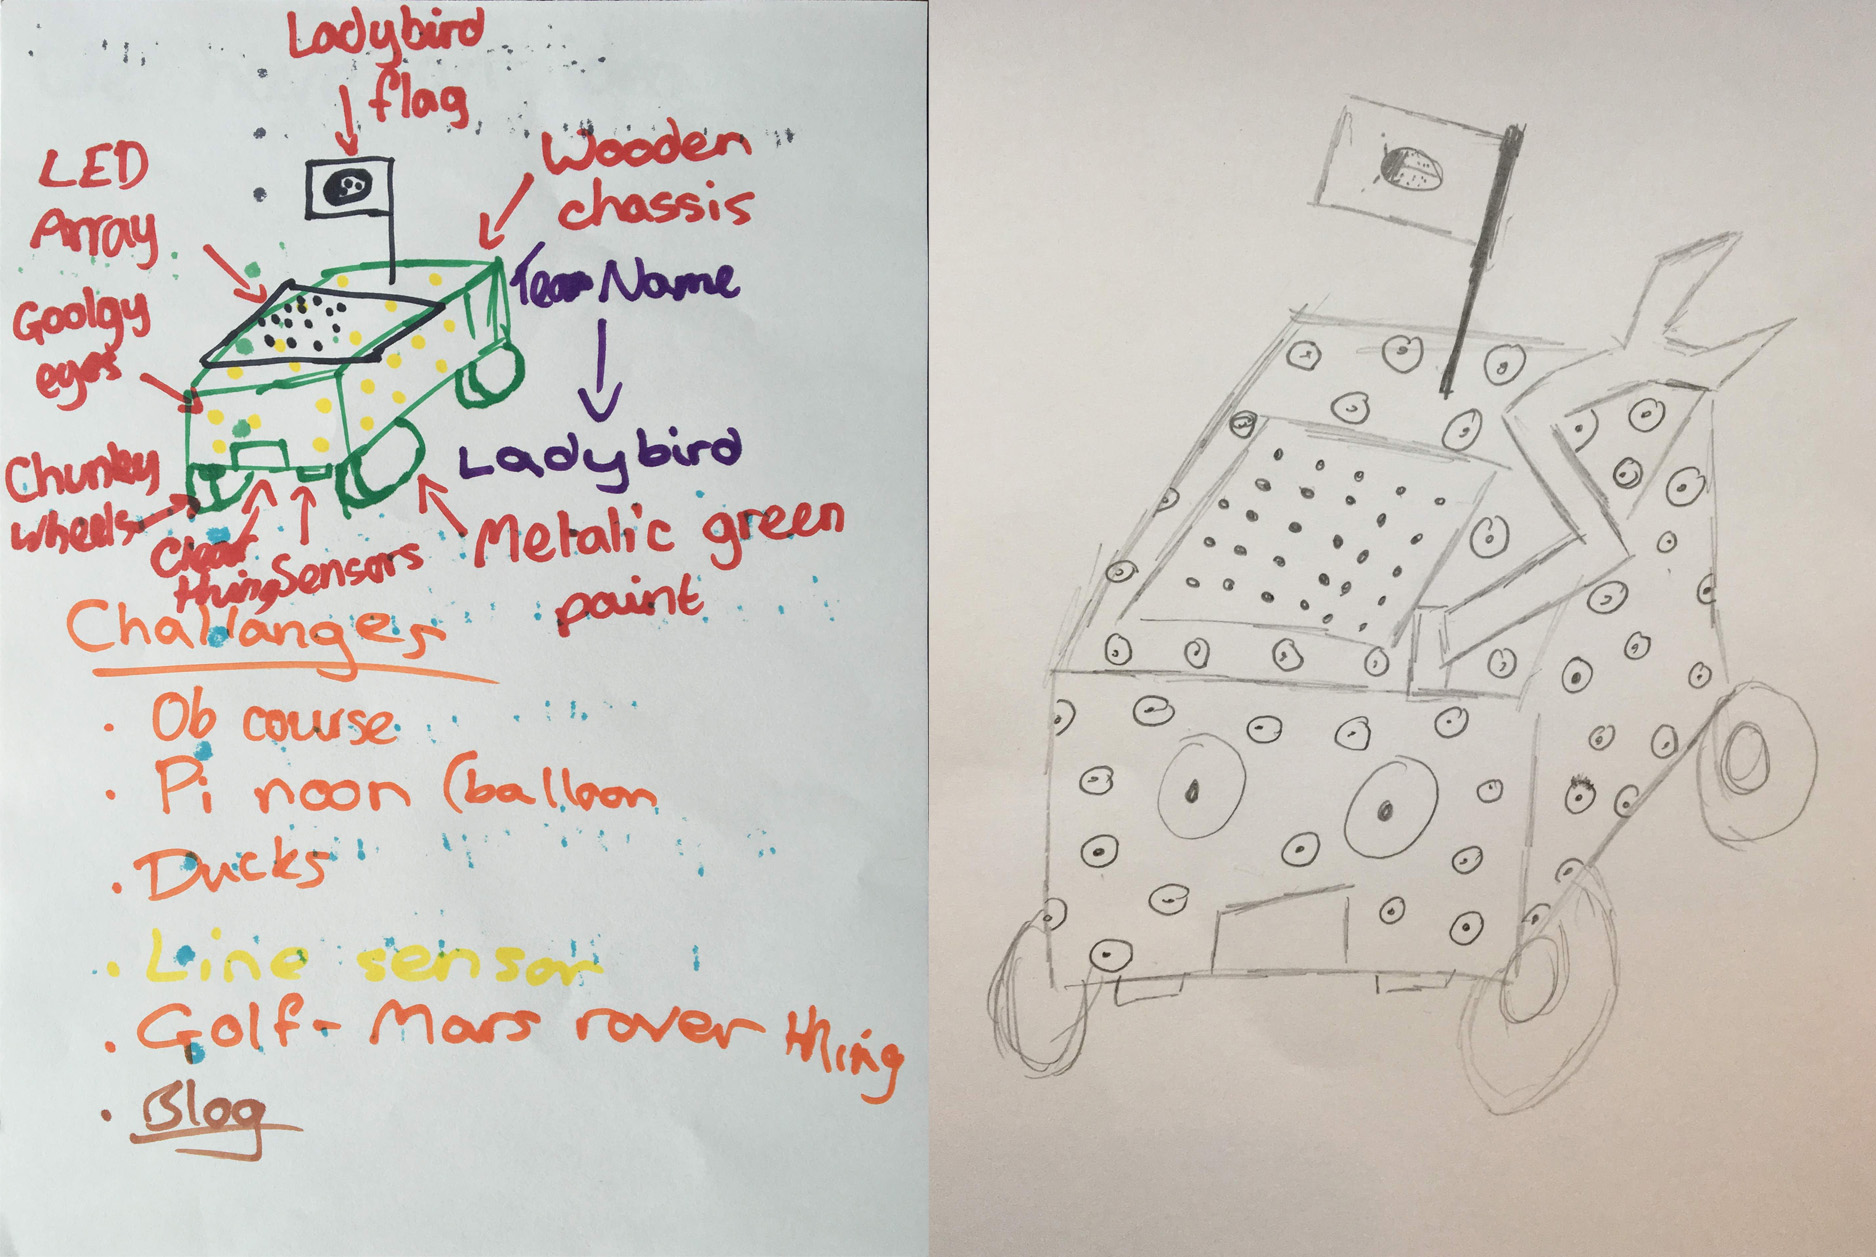 Ladybird
flag
LED
Array
Wooden
chassis
Goolgy
eyes
Team Name
Ladybird
Chunky
wheels
thing
Sensors
Metalic green
paint
Challanges
· Ob course
· Pi noon (balloon
· Ducks
· Line sensor
· Golf- Mars rover thing
· Blog